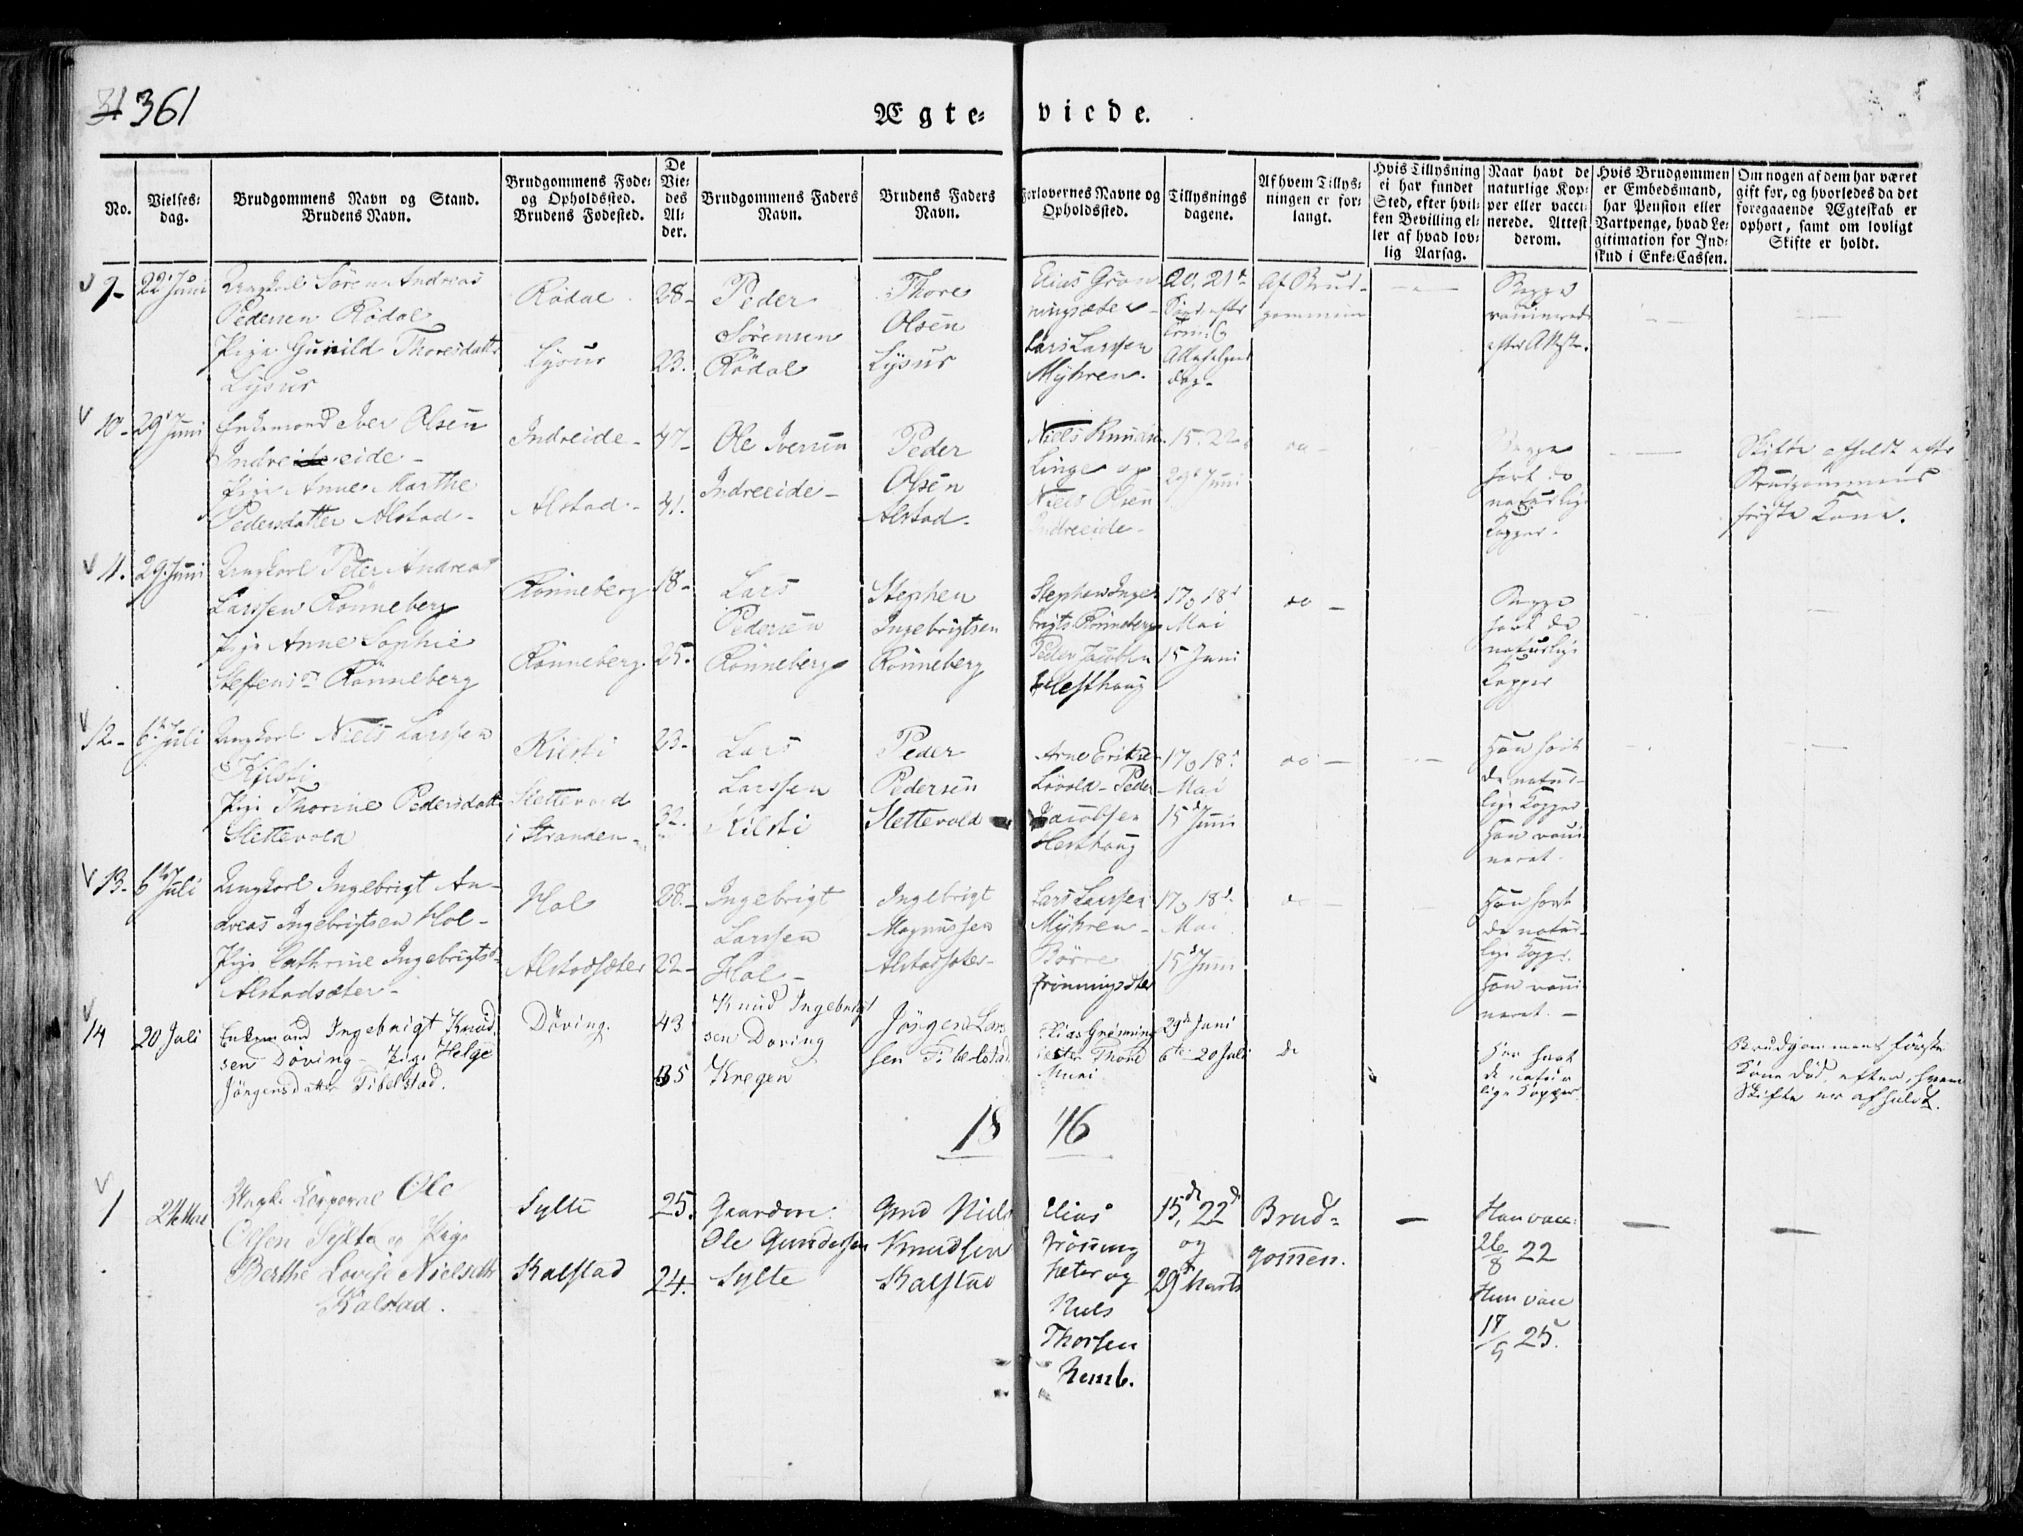 361
Ægte-viede.
No.
Vielses-dag.
Brudgommens Navn og Stand.
Brudens Navn.
Brudgommens Føde- og Opholdssted.
Brudens Fødested.
De Vie-des Al-der.
Brudgommens Faders Navn.
Brudens Faders Navn.
Forlovernes Navne og Opholdssted.
Tillysnings dagene.
Af hvem Tillys-ningen er for-langt.
Hvis Tillysning ei har fundet Sted, efter hvil-ken Bevilling el-ler af hvad lov-lig Aarsag.
Naar havt de naturlige Kop-per eller vacci-nerede. Attest derom.
Hvis Brudgommen er Embedsmand, har Pension eller Vartpenge, hvad Le-gitimation for Ind-skud i Enke-Cassen.
Om nogen af dem har været gift før, og hvorledes da det foregaaende Ægteskab er ophørt, samt om lovligt Skifte er holdt.
9- 22 Juni
Ungkarl Sören Andreas
Pedersen Rödal
Pige Gunild Thoresdatter
Lysur
Rödal
Lysur
28-
23.
Peder
Sörensen
Rödal
Thore
Olsen
Lysur
Elias Grøn-
ningsæter
Lars Larssen
Myhren.
20, 21
Af Brud-
gommen
Begge
vaccinerede
efter Attest.
10- 29 Juni
Enkemand Iver Olsen
Indreeide-
Pige Anne Marthe
Pedersdatter Alstad-
Indreide-
Alstad-
47-
41.
Ole Iversen
Indreeide-
Peder
Olsen
Alstad-
Niels Knudsen
Linge og
Niels Olsen
Indreeide-
15. 22
29 Juni
do-
Begge
havt de
naturlige
Kopper.
Skifte afholdt efter
Brudgommens
første Kone.
11. 29 Juni
Ungkarl Peter Andreas
Larssen Rönneberg
Pige Anne Sophie
Steffensd. Rönneberg
Rönneberg
Rönneberg-
18-
25.
Lars
Pedersen
Rönneberg
Stephen
Ingebrigtsen
Rönneberg
Stephen Inge-
brigts. Rönneberg
Peder Jacobsen
Hesthaug
17, 18
Mai
15 Juni
do-
Begge
havt de
naturlige
Kopper
12- 6 Juli
Ungkarl Niels Larssen
Kilsti
Pige Thorine Pedersdatt.
Slettevold
Kilsti
Slettevold
i Stranden-
23-
32.
Lars
Larssen
Kilsti
Peder
Pedersen
Slettevold
Arne Erikse
Lövold- Peder
Jacobsen
Hesthaug
17, 18
Mai
15 Juni
do-
Han havt
de natur-
lige Kopper
Hun vacci-
neret.
13- 6 Juli
Ungkarl Ingebrigt An-
dreas Ingebrigtsen Hol-
Pige Cathrine Ingebrigtsd.
Alstadsæter-
Hol
Alstadsæter
28.-
22-
Ingebrigt
Larssen
Hol-
Ingebrigt
Magnussen
Alstadsæter-
Lars Larssen
Myhren-
Börre
Grönningsæter
17, 18
Mai
15 Juni
do-
Han havt
de natur-
lige Kopper.
Hun vacci-
neret.-
14 20 Juli
Enkemand Ingebrigt Knud-
sen Döving- Pige Helge
Jörgensdatter Fibelstad.
Döving.
43
35
Knud Ingebrigt
sen Döving
Kregen
Jörgen Lars
sen Fibelstad
Elias Grönning
sæter Thore
Muri
29 Juni
6te 20 Juli
do
Han havt
de natur
lige Kopper
Brudgommens første
Kone död, efter hvem
Skifte er afholdt.
1846
1
Ungk. Corporal Ole
Olsen Sylte og Pige
Berthe Lovise Nielsdtr
Kalstad.
Sylte
Kalstad
25.
24.
Gaardm.
Ole Gundersen
Sylte
Gmd Niels
Knudsen
Kalstad
Elias
Grönning
sæter og
Niels
Thorsen
Kemb.
15, 22
og
29 Marts
Brud-
gommen.
Han vacc:
26/8 22
Hun vacc
18/9 25.